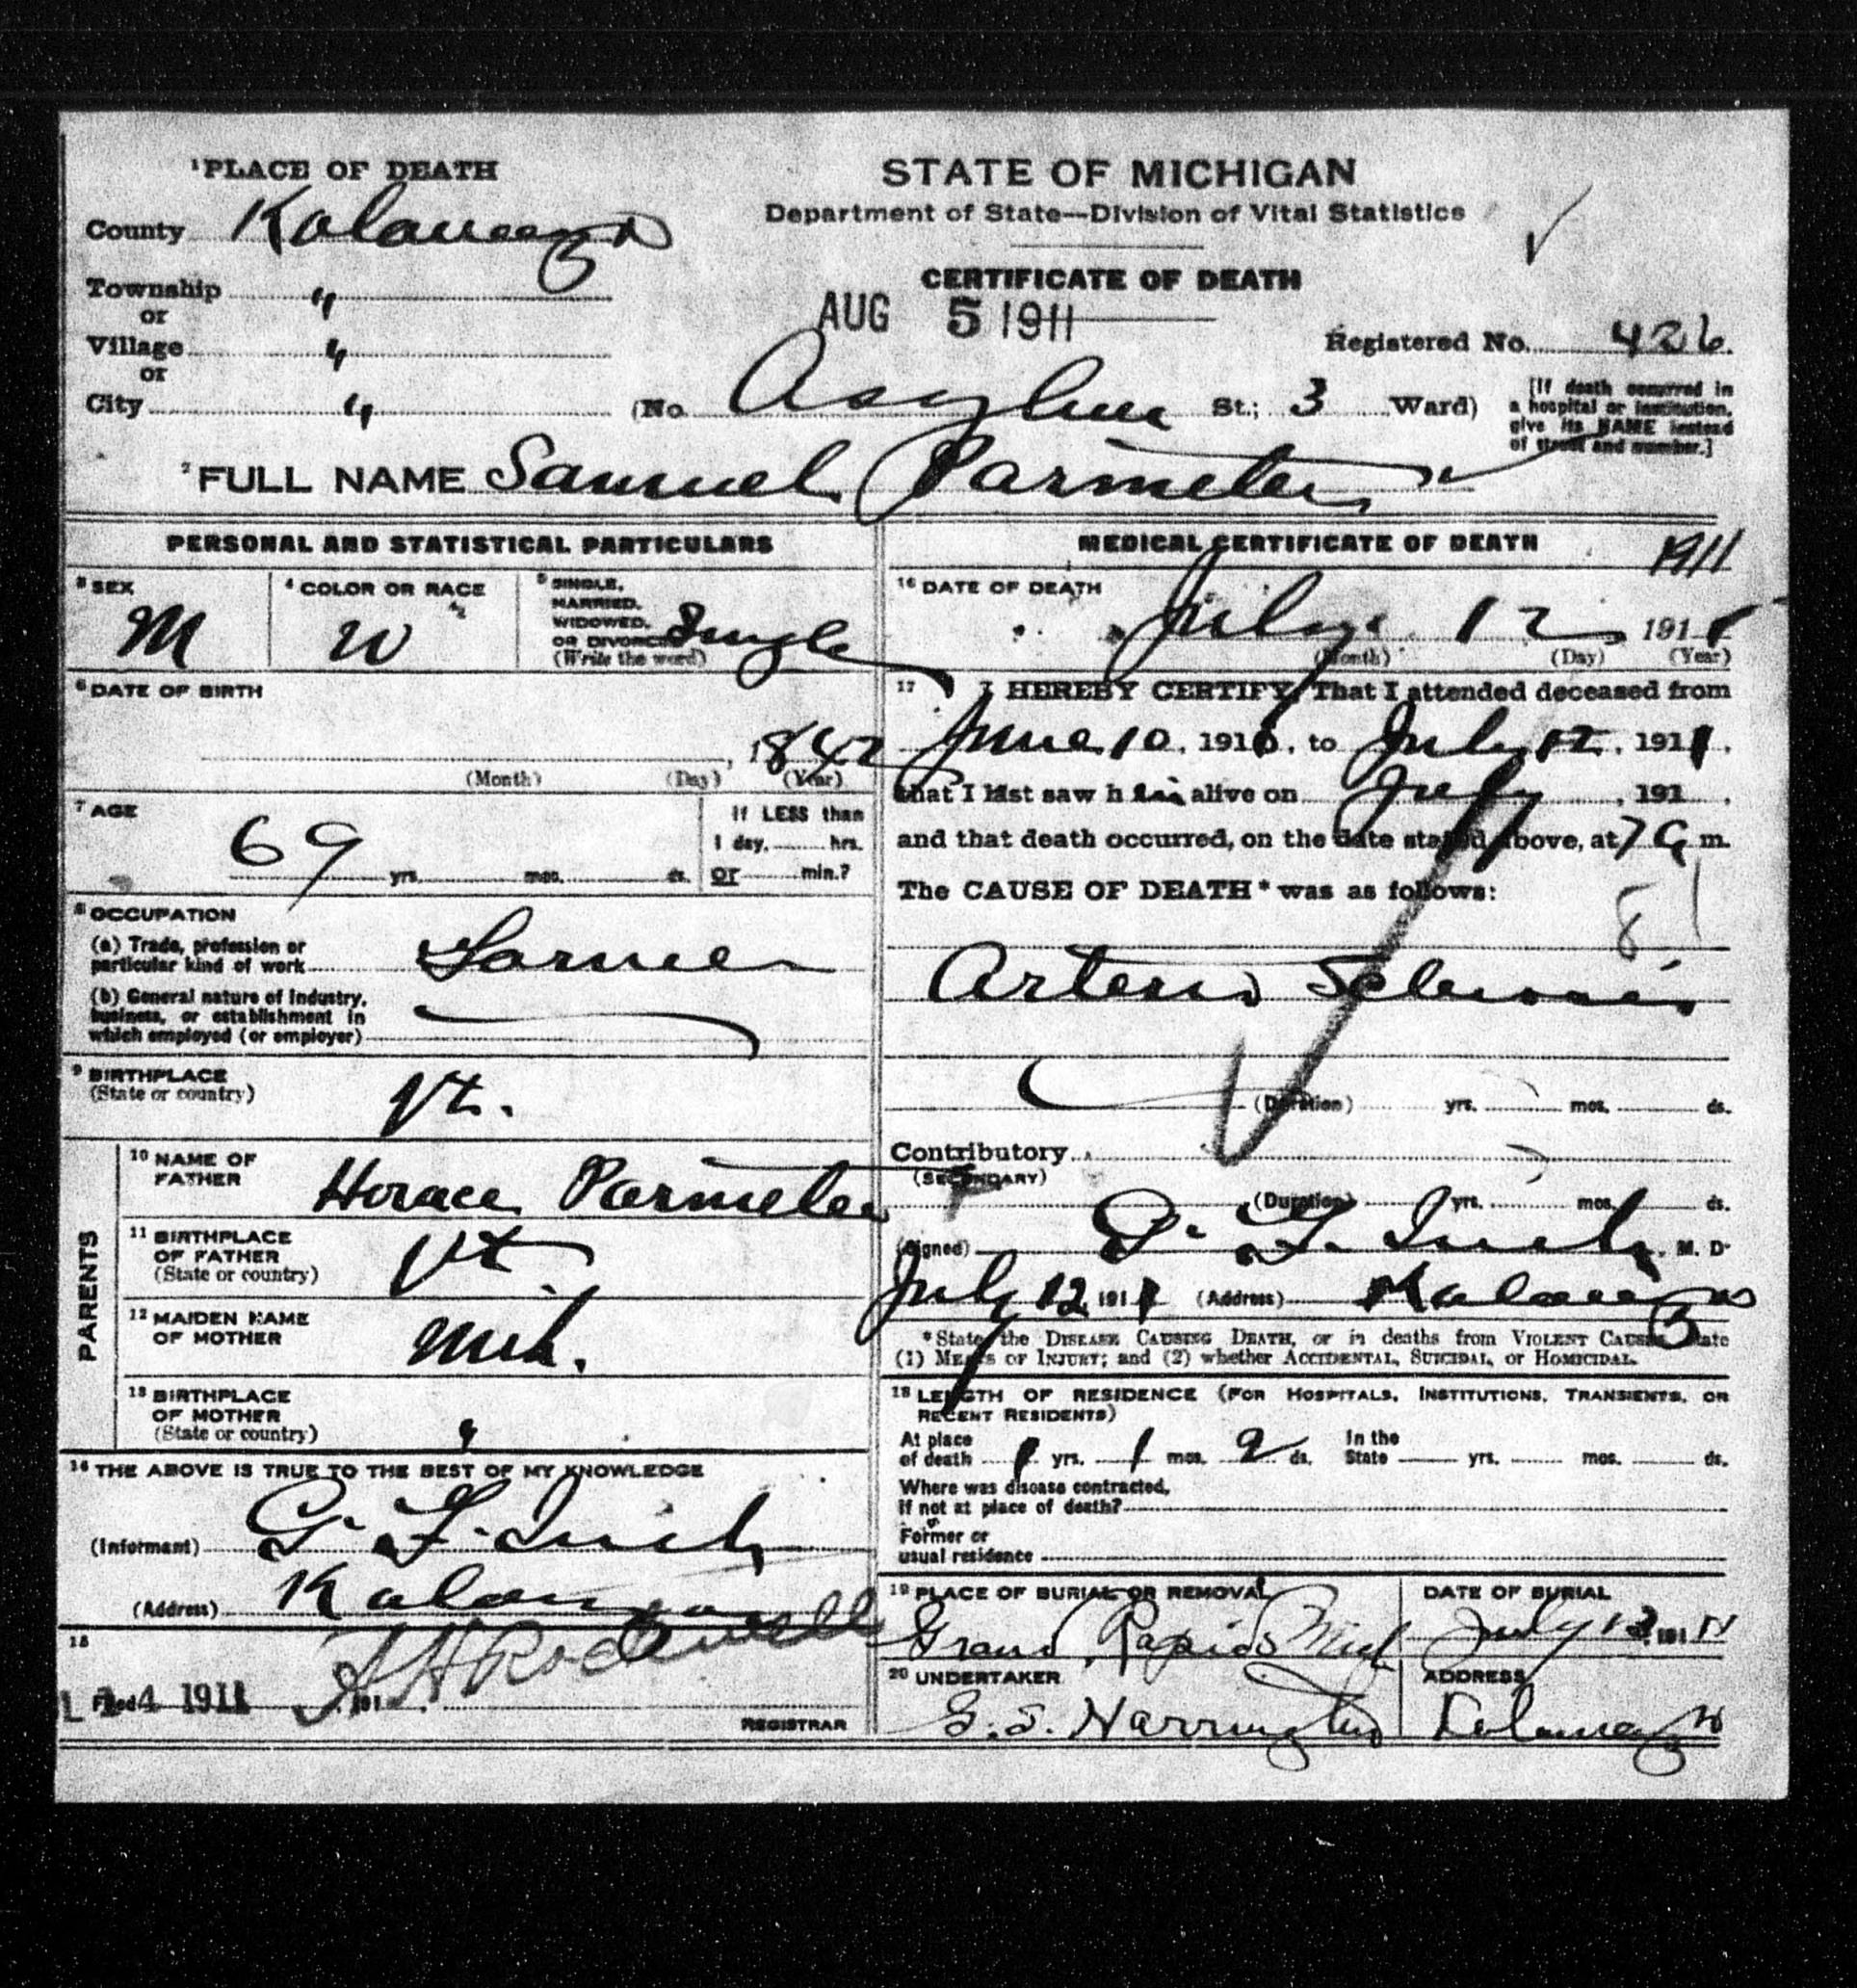 ¹PLACE OF DEATH
STATE OF MICHIGAN
Department of State—Division of Vital Statistics
County Kalamazoo
CERTIFICATE OF DEATH
Township "
or
AUG 5 1911
Village "
or
Registered No. 426
City " (No. Asylum St.; 3 Ward)
[If death occurred in
a hospital or institution,
give its NAME instead
of street and number.]
²FULL NAME Samuel Parmeter
PERSONAL AND STATISTICAL PARTICULARS
³SEX
M
⁴COLOR OR RACE
W
⁵SINGLE,
MARRIED,
WIDOWED,
OR DIVORCED
(Write the word)
Single
⁶DATE OF BIRTH
, 1842
(Month) (Day) (Year)
⁷AGE
69 yrs. mos. ds.
If LESS than
1 day, hrs.
or min.?
⁸OCCUPATION
(a) Trade, profession or
particular kind of work Farmer
(b) General nature of industry,
business, or establishment in
which employed (or employer)
⁹BIRTHPLACE
(State or country)
Vt.
PARENTS
¹⁰NAME OF
FATHER
Horace Parmeter
¹¹BIRTHPLACE
OF FATHER
(State or country)
Vt.
¹²MAIDEN NAME
OF MOTHER
¹³BIRTHPLACE
OF MOTHER
(State or country)
"
¹⁴THE ABOVE IS TRUE TO THE BEST OF MY KNOWLEDGE
(Informant) G. F. Inch
(Address) Kalamazoo
¹⁵
Filed 4 1911 191
A H Rockwell
REGISTRAR
MEDICAL CERTIFICATE OF DEATH
1911
¹⁶DATE OF DEATH
July 12 1911
(Month) (Day) (Year)
¹⁷ I HEREBY CERTIFY, That I attended deceased from
June 10, 1910, to July 12, 1911,
that I last saw him alive on July, 191 ,
and that death occurred, on the date stated above, at 7 a m.
The CAUSE OF DEATH* was as follows:
81
Arterio Sclerosis
(Duration) yrs. mos. ds.
Contributory
(SECONDARY)
(Duration) yrs. mos. ds.
(Signed) G. F. Inch, M. D.
July 12 1911 (Address) Kalamazoo
*State the DISEASE CAUSING DEATH, or in deaths from VIOLENT CAUSES state
(1) MEANS OF INJURY; and (2) whether ACCIDENTAL, SUICIDAL, or HOMICIDAL.
¹⁸LENGTH OF RESIDENCE (FOR HOSPITALS, INSTITUTIONS, TRANSIENTS, OR
RECENT RESIDENTS)
At place
of death 1 yrs. 1 mos. 2 ds.
In the
State yrs. mos. ds.
Where was disease contracted,
if not at place of death?
Former or
usual residence
¹⁹PLACE OF BURIAL OR REMOVAL
Grand Rapids Mich
DATE OF BURIAL
July 13 1911
²⁰UNDERTAKER
G. S. Harrington
ADDRESS
Kalamazoo